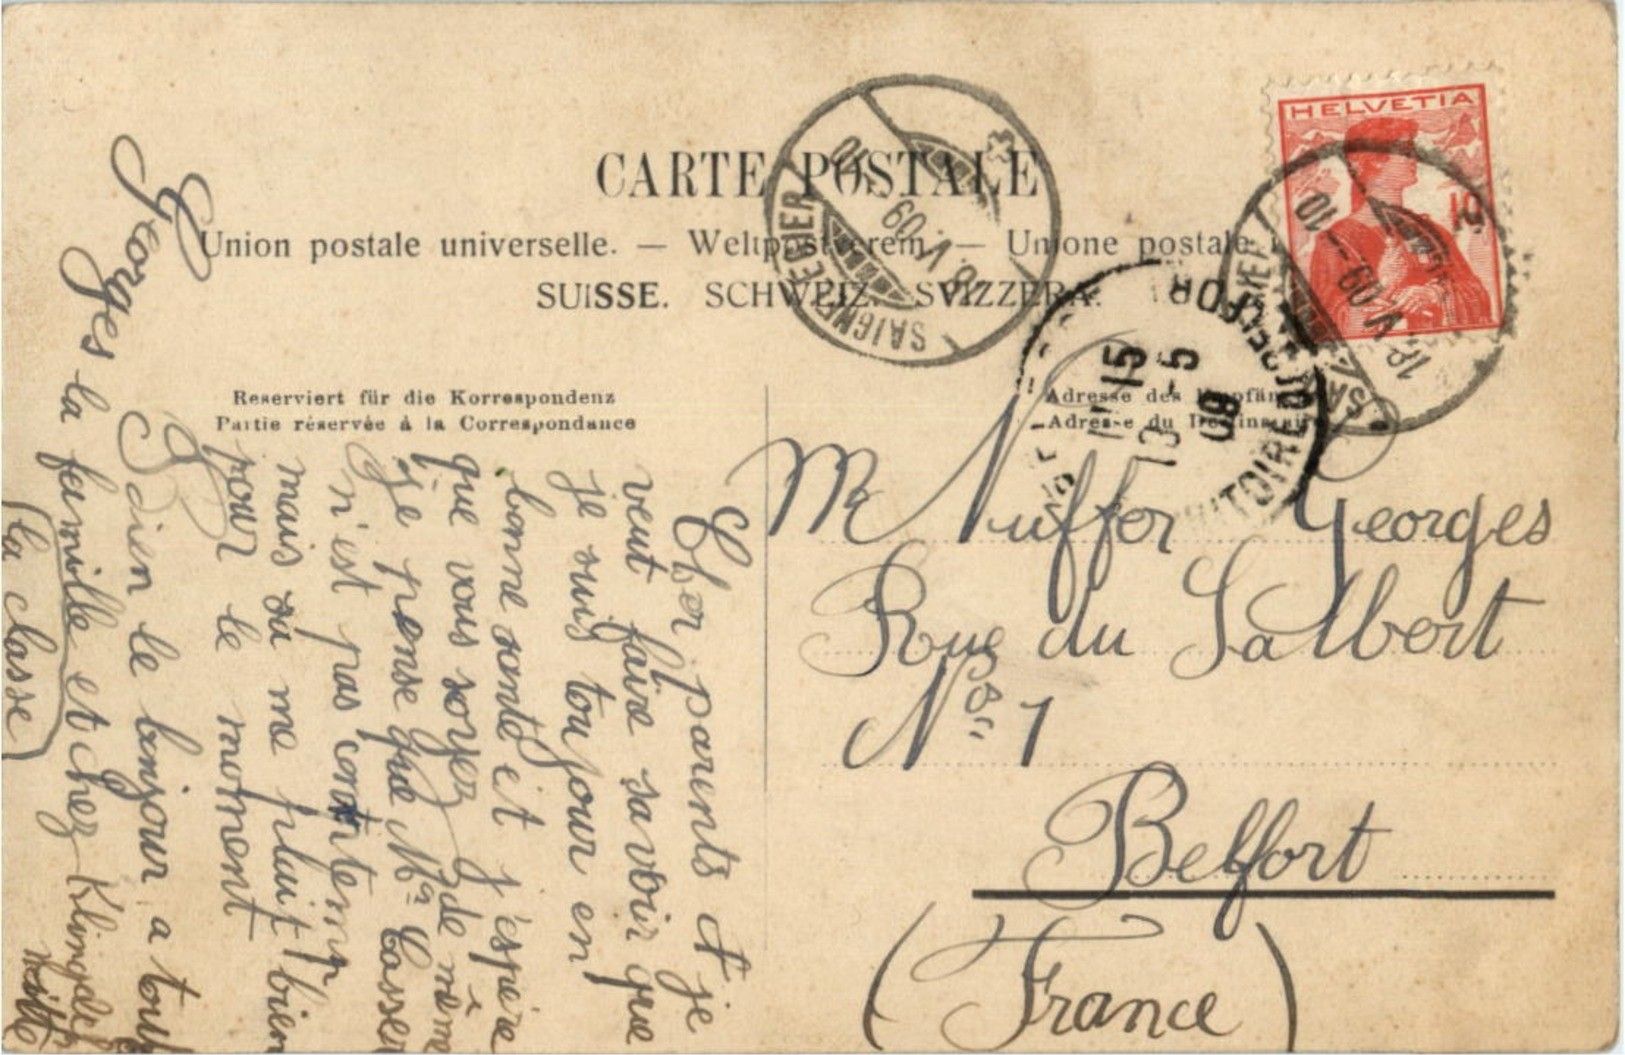 CARTE POSTALE
Union postale universelle. — Weltpostverein. — Unione postale
SUISSE. SCHWEIZ. SVIZZERA.
HELVETIA
10
SAIGNELEGIER
18. V. 09 — 10
SAIGNELEGIER
18. V. 09 — 10
BELFORT
15
5
09
TERRITOIRE DE BELFORT
Reserviert für die Korrespondenz
Partie réservée à la Correspondance
Adresse des Empfän
Adresse du Destinataire
Mr Nuffer Georges
Rue du Salbert
No 1
Belfort
(France)
Cher parents et je
veut faire savoir que
je suis toujour en
bonne santé et j'espère
que vous soyez de même
je pense que Mr Cosser
n'est pas contntemp
mais sa me pluit bien
pour le moment
Bien le bonjour a tout
la famille et chez
la classe
Georges